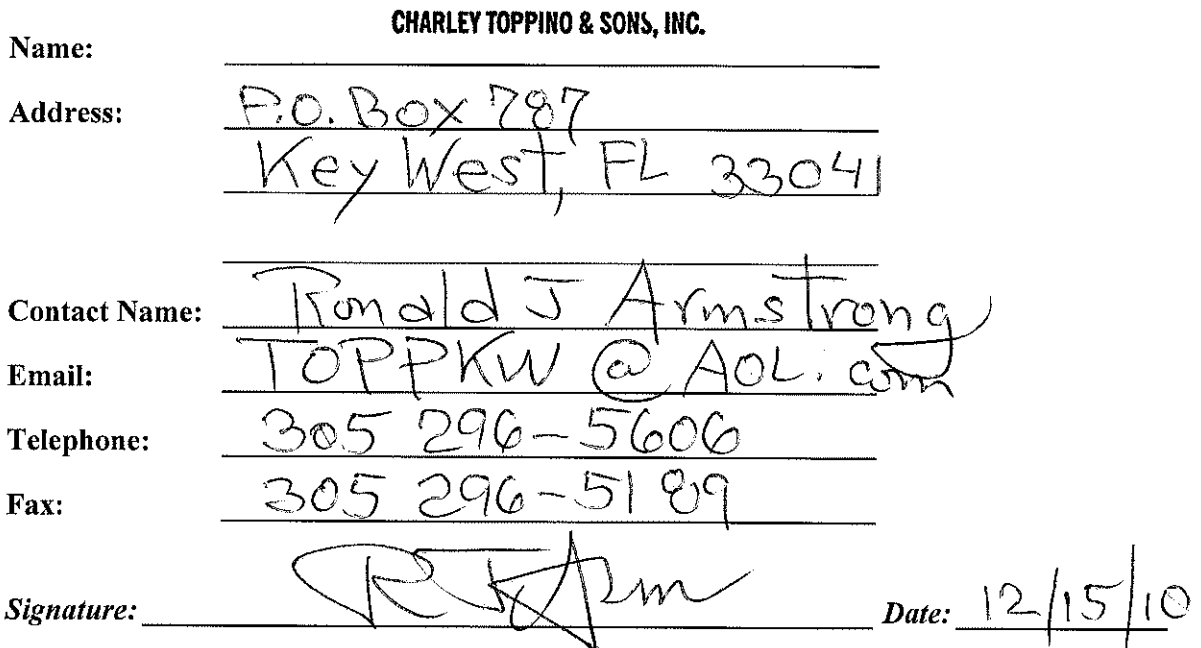 CHARLEY TOPPINO & SONS, INC.
Name:
Address: P.O. Box 787
Key West, FL 33041
Contact Name: Ronald J Armstrong
Email: TOPPKW @ AOL. com
Telephone: 305 296-5606
Fax: 305 296-5189
Signature: Date: 12/15/10